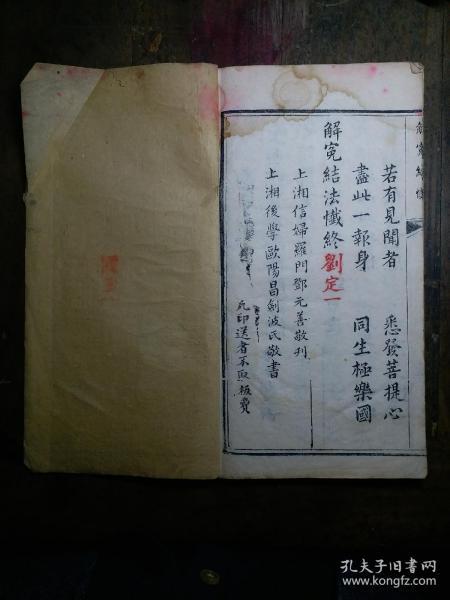 若有見聞者　悉發菩提心
盡此一報身　同生極樂國
解冤結法懺終 劉定一
上湘信婦羅門鄧元善敬刊
上湘後學歐陽昌劍波氏敬書
凡印送者不取板費
孔夫子旧书网
www.kongfz.com